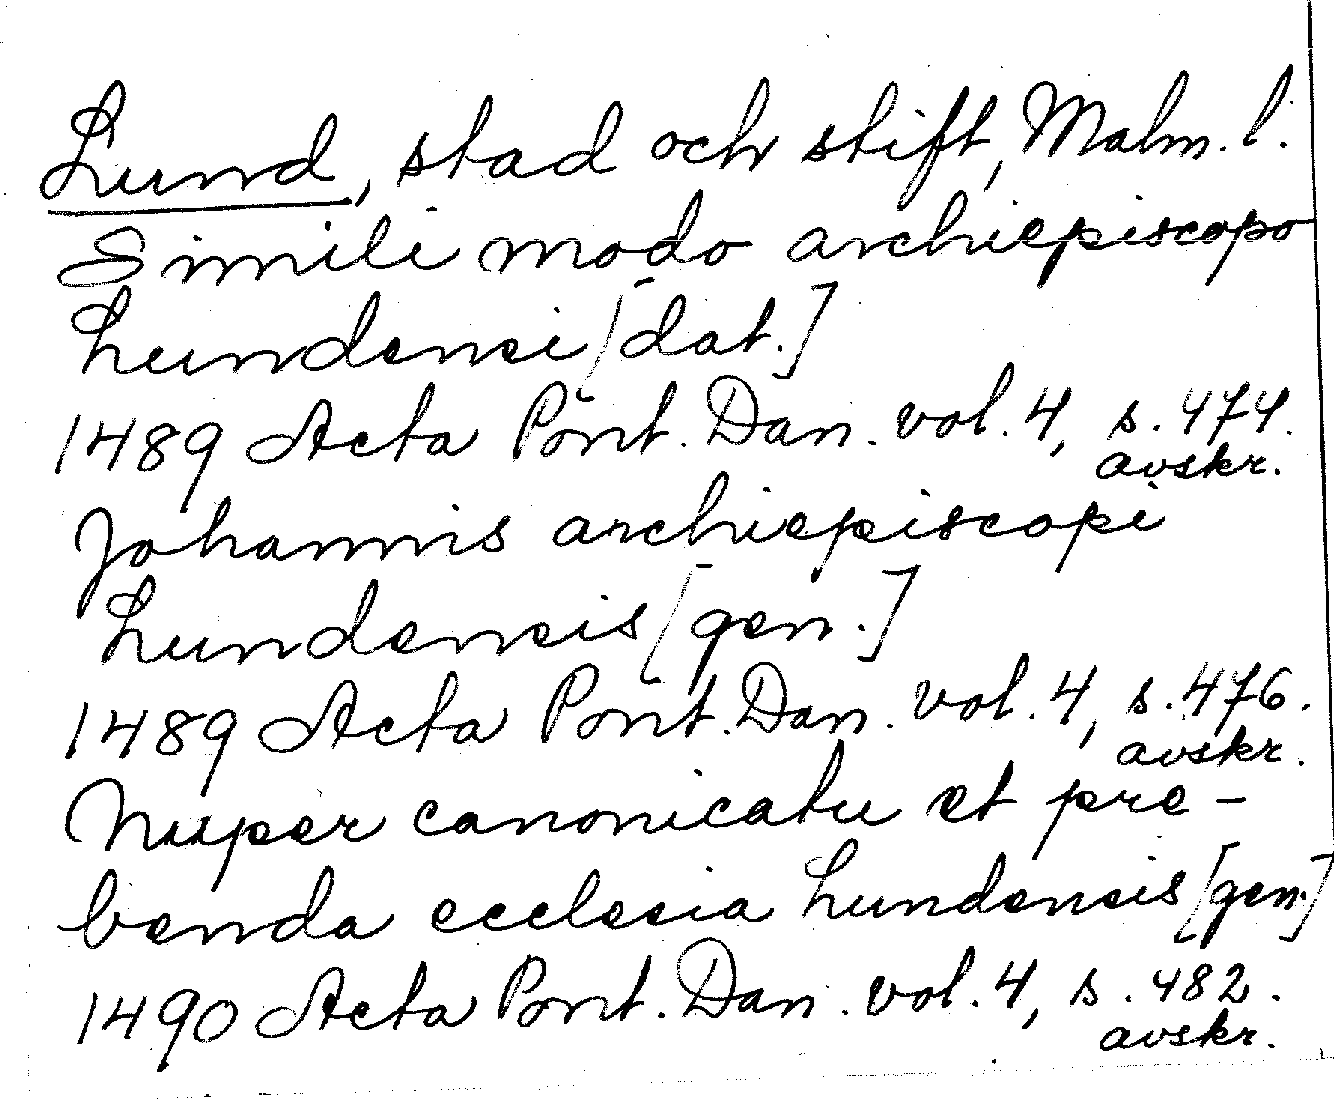 Lund, stad och stift, Malm. l.
Simili modo archiepiscopo
Lundensi [dat.]
1489 Acta Pont. Dan. vol. 4, s. 474.
avskr.
Johannis archiepiscopi
Lundensis [gen.]
1489 Acta Pont. Dan. vol. 4, s. 476.
avskr.
Nuper canonicatu et pre-
benda ecclesia Lundensis [gen.]
1490 Acta Pont. Dan. vol. 4, s. 482.
avskr.